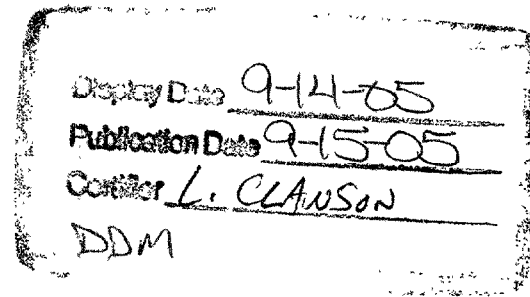 Display Date 9-14-05
Publication Date 9-15-05
Certifier L. CLAWSON
DDM